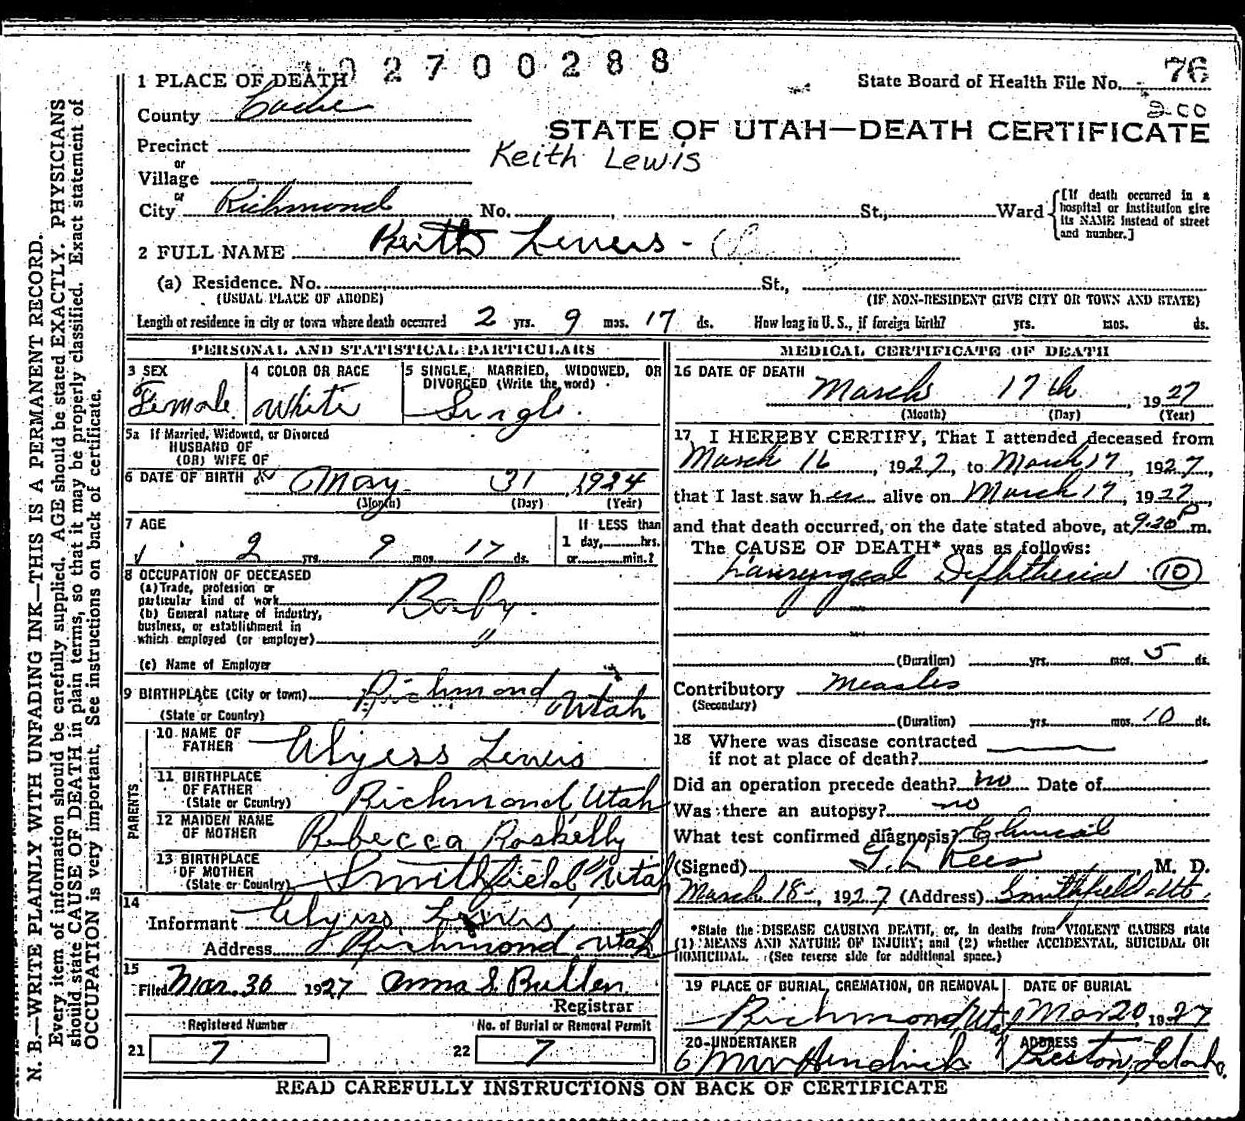 2700288
1 PLACE OF DEATH
State Board of Health File No. 76
County Cache
200
STATE OF UTAH—DEATH CERTIFICATE
Precinct
Keith Lewis
or
Village
or
City Richmond No. St., Ward
[If death occurred in a hospital or institution give its NAME instead of street and number.]
2 FULL NAME Keith Lewis -
(a) Residence. No. St.,
(USUAL PLACE OF ABODE) (IF NON-RESIDENT GIVE CITY OR TOWN AND STATE)
Length of residence in city or town where death occurred 2 yrs. 9 mos. 17 ds. How long in U. S., if foreign birth? yrs. mos. ds.
PERSONAL AND STATISTICAL PARTICULARS
3 SEX Female
4 COLOR OR RACE White
5 SINGLE, MARRIED, WIDOWED, OR DIVORCED (Write the word) Single.
5a If Married, Widowed, or Divorced
HUSBAND OF
(OR) WIFE OF
6 DATE OF BIRTH May 31, 1924
(Month) (Day) (Year)
7 AGE
2 yrs. 9 mos. 17 ds.
If LESS than
1 day, hrs.
or min.?
8 OCCUPATION OF DECEASED
(a) Trade, profession or
particular kind of work Baby.
(b) General nature of industry,
business, or establishment in
which employed (or employer) "
(c) Name of Employer
9 BIRTHPLACE (City or town) Richmond
(State or Country) Utah
PARENTS
10 NAME OF FATHER Ulyess Lewis
11 BIRTHPLACE OF FATHER (State or Country) Richmond, Utah
12 MAIDEN NAME OF MOTHER Rebecca Roskelly
13 BIRTHPLACE OF MOTHER (State or Country) Smithfield Utah
14
Informant Ulyess Lewis
Address Richmond Utah
15
Filed Mar. 30 1927 Anna S. Bullen
Registrar
Registered Number
21 7
No. of Burial or Removal Permit
22 7
MEDICAL CERTIFICATE OF DEATH
16 DATE OF DEATH
March 17th, 1927
(Month) (Day) (Year)
17 I HEREBY CERTIFY, That I attended deceased from
March 16, 1927, to March 17, 1927,
that I last saw her alive on March 17, 1927,
and that death occurred, on the date stated above, at 9:20 P m.
The CAUSE OF DEATH* was as follows:
Laryngeal Diphtheria (10)
(Duration) yrs. mos. 5 ds.
Contributory Measles
(Secondary)
(Duration) yrs. mos. 10 ds.
18 Where was disease contracted
if not at place of death?
Did an operation precede death? no Date of
Was there an autopsy? no
What test confirmed diagnosis? Clinical
(Signed) G. L. Rees M. D.
March 18, 1927 (Address) Smithfield Ut.
*State the DISEASE CAUSING DEATH, or, in deaths from VIOLENT CAUSES state
(1) MEANS AND NATURE OF INJURY; and (2) whether ACCIDENTAL, SUICIDAL OR
HOMICIDAL. (See reverse side for additional space.)
19 PLACE OF BURIAL, CREMATION, OR REMOVAL
Richmond Utah
DATE OF BURIAL
Mar 20, 1927
20 UNDERTAKER
Hendricks
ADDRESS
Preston, Idaho.
READ CAREFULLY INSTRUCTIONS ON BACK OF CERTIFICATE
N. B.—WRITE PLAINLY WITH UNFADING INK—THIS IS A PERMANENT RECORD.
Every item of information should be carefully supplied. AGE should be stated EXACTLY. PHYSICIANS
should state CAUSE OF DEATH in plain terms, so that it may be properly classified. Exact statement of
OCCUPATION is very important. See instructions on back of certificate.